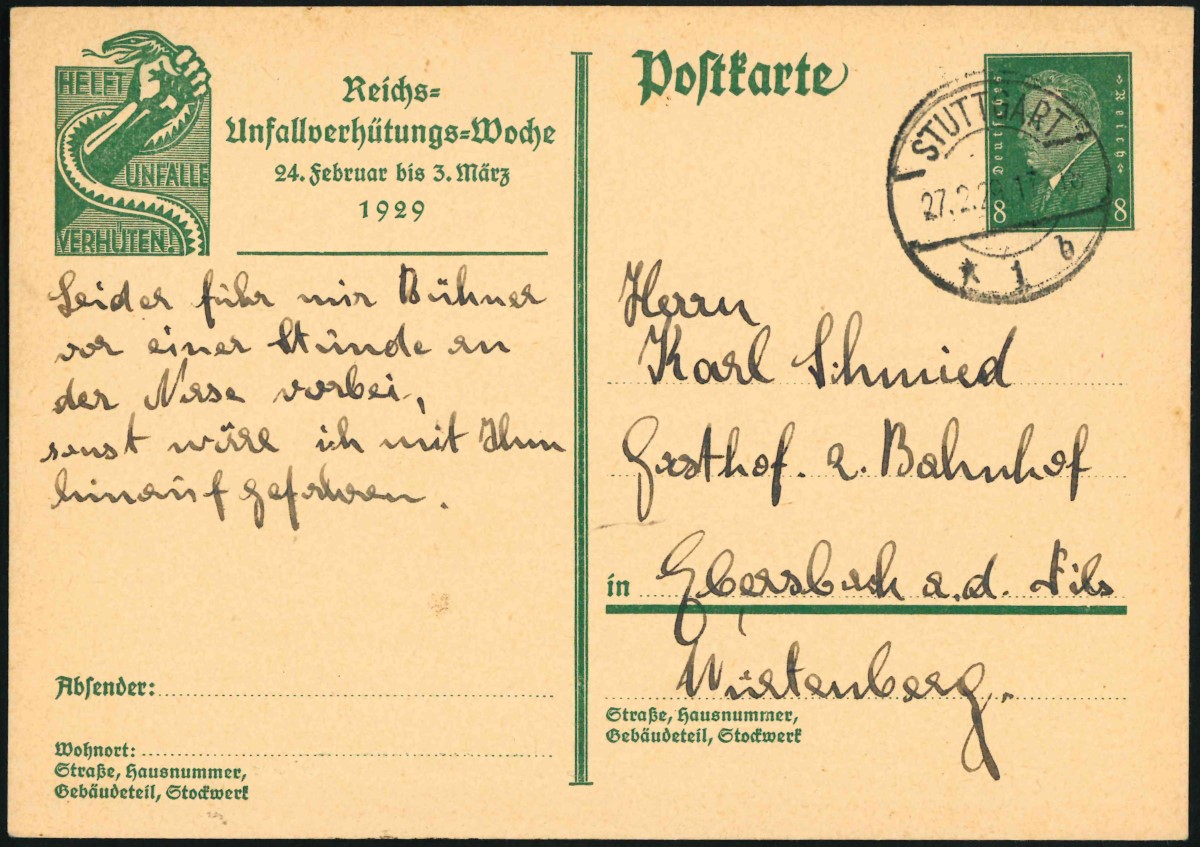 HELFT
UNFÄLLE
VERHÜTEN!
Reichs=
Unfallverhütungs=Woche
24. Februar bis 3. März
1929
Leider fuhr mir Bühner
vor einer Stunde an
der Nase vorbei,
sonst wäre ich mit Ihm
hinauf gefahren.
Absender:
Wohnort:
Straße, Hausnummer,
Gebäudeteil, Stockwerk
Postkarte
Deutsches
Reich
8 8
STUTTGART
27.2.29
* 1 b
Herrn
Karl Schmied
Gasthof. z. Bahnhof
in Ebersbach a.d. Fils
Würtenberg.
Straße, Hausnummer,
Gebäudeteil, Stockwerk